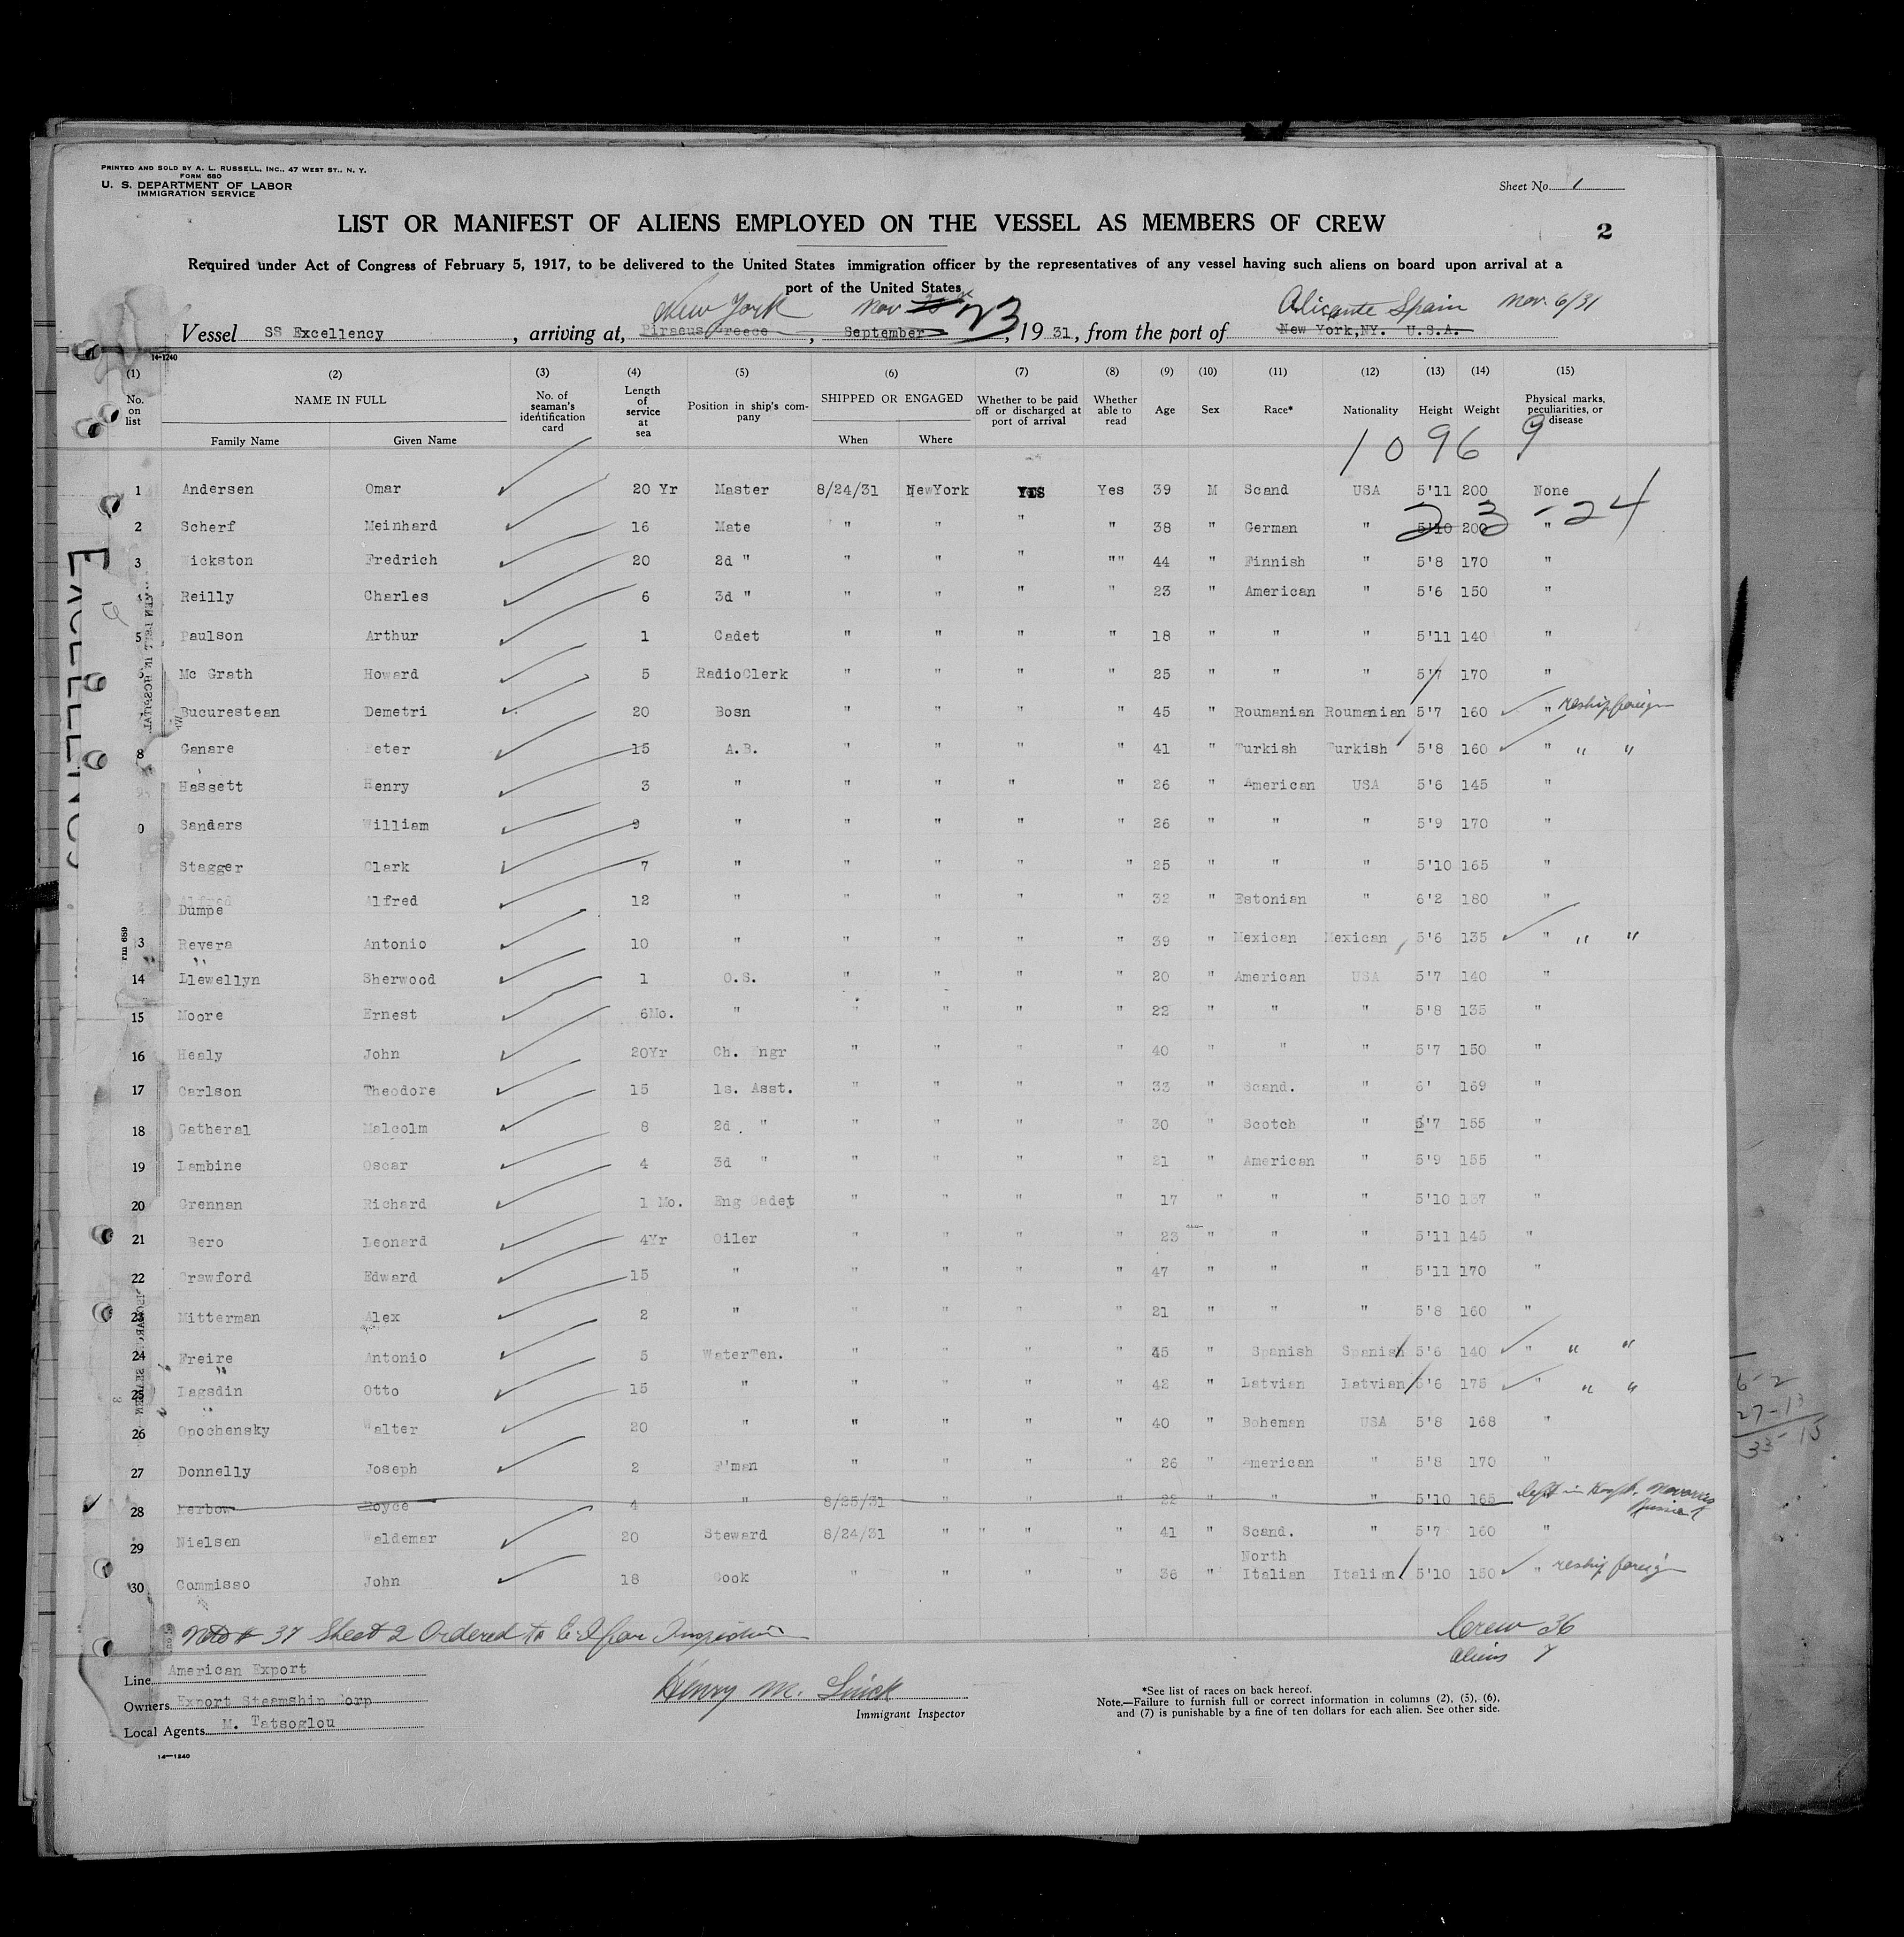 PRINTED AND SOLD BY A. L. RUSSELL, INC., 47 WEST ST., N. Y.
FORM 680
U. S. DEPARTMENT OF LABOR
IMMIGRATION SERVICE
Sheet No. 1
LIST OR MANIFEST OF ALIENS EMPLOYED ON THE VESSEL AS MEMBERS OF CREW
2
Required under Act of Congress of February 5, 1917, to be delivered to the United States immigration officer by the representatives of any vessel having such aliens on board upon arrival at a
port of the United States
New York Nov 23 Alicante Spain Nov. 6/31
Vessel SS Excellency, arriving at, Piraeus Greece, September, 1931, from the port of New York,NY. U.S.A.
14-1240
(1) (2) (3) (4) (5) (6) (7) (8) (9) (10) (11) (12) (13) (14) (15)
No. on list NAME IN FULL No. of seaman's identification card Length of service at sea Position in ship's company SHIPPED OR ENGAGED Whether to be paid off or discharged at port of arrival Whether able to read Age Sex Race* Nationality Height Weight Physical marks, peculiarities, or disease
Family Name Given Name When Where
1 0 9 6 9
1 Andersen Omar 20 Yr Master 8/24/31 NewYork YES Yes 39 M Scand USA 5'11 200 None
23-24
2 Scherf Meinhard 16 Mate " " " " 38 " German " 5'10 200 "
3 ickston Fredrich 20 2d " " " " "" 44 " Finnish " 5'8 170 "
4 Reilly Charles 6 3d " " " " " 23 " American " 5'6 150 "
5 Paulson Arthur 1 Cadet " " " " 18 " " " 5'11 140 "
Mc Grath Howard 5 RadioClerk " " " " 25 " " " 5'7 170 "
Bucurestean Demetri 20 Bosn " " " " 45 " Roumanian Roumanian 5'7 160 " reship foreign
8 Ganare Peter 15 A.B. " " " " 41 " Turkish Turkish 5'8 160 " " "
Hassett Henry 3 " " " " " 26 " American USA 5'6 145 "
0 Sanders William 9 " " " " " 26 " " " 5'9 170 "
Stagger Clark 7 " " " " " 25 " " " 5'10 165 "
Alfred
Dumpe Alfred 12 " " " " " 32 " Estonian " 6'2 180 "
3 Revera Antonio 10 " " " " " 39 " Mexican Mexican 5'6 135 " " "
14 Llewellyn Sherwood 1 O.S. " " " " 20 " American USA 5'7 140 "
15 Moore Ernest 6Mo. " " " " " 22 " " " 5'8 135 "
16 Healy John 20Yr Ch. Engr " " " " 40 " " " 5'7 150 "
17 Carlson Theodore 15 1s. Asst. " " " " 33 " Scand. " 6' 169 "
18 Gatheral Malcolm 8 2d. " " " " " 30 " Scotch " 5'7 155 "
19 Lambine Oscar 4 3d " " " " " 21 " American " 5'9 155 "
20 Grennan Richard 1 Mo. Eng Cadet " " " " 17 " " " 5'10 137 "
21 Bero Leonard 4Yr Oiler " " " " 23 " " " 5'11 145 "
22 Crawford Edward 15 " " " " " 47 " " " 5'11 170 "
23 Mitterman Alex 2 " " " " " 21 " " " 5'8 160 "
24 Freire Antonio 5 WaterTen. " " " " 45 " Spanish Spanish 5'6 140 " " "
25 Lagsdin Otto 15 " " " " " 42 " Latvian Latvian 5'6 175 " " "
26 Opochensky Walter 20 " " " " " 40 " Boheman USA 5'8 168 "
27 Donnelly Joseph 2 F'man " " " " 26 " American " 5'8 170 "
28 Kerbow Royce 4 " 8/25/31 " " " 22 " " " 5'10 165 left in Hosp. Russia
29 Nielsen Waldemar 20 Steward 8/24/31 " " " " 41 " Scand. " 5'7 160 "
30 Commisso John 18 Cook " " " " 36 " North Italian Italian 5'10 150 " reship foreign
Note # 37 Sheet 2 Ordered to E.I for Inspection
Crew 36
Aliens 7
Line American Export
Owners Export Steamship Corp
Local Agents M. Tatsoglou
Henry M.
Immigrant Inspector
*See list of races on back hereof.
Note.—Failure to furnish full or correct information in columns (2), (5), (6),
and (7) is punishable by a fine of ten dollars for each alien. See other side.
14—1240
6-2
27-13
33-15